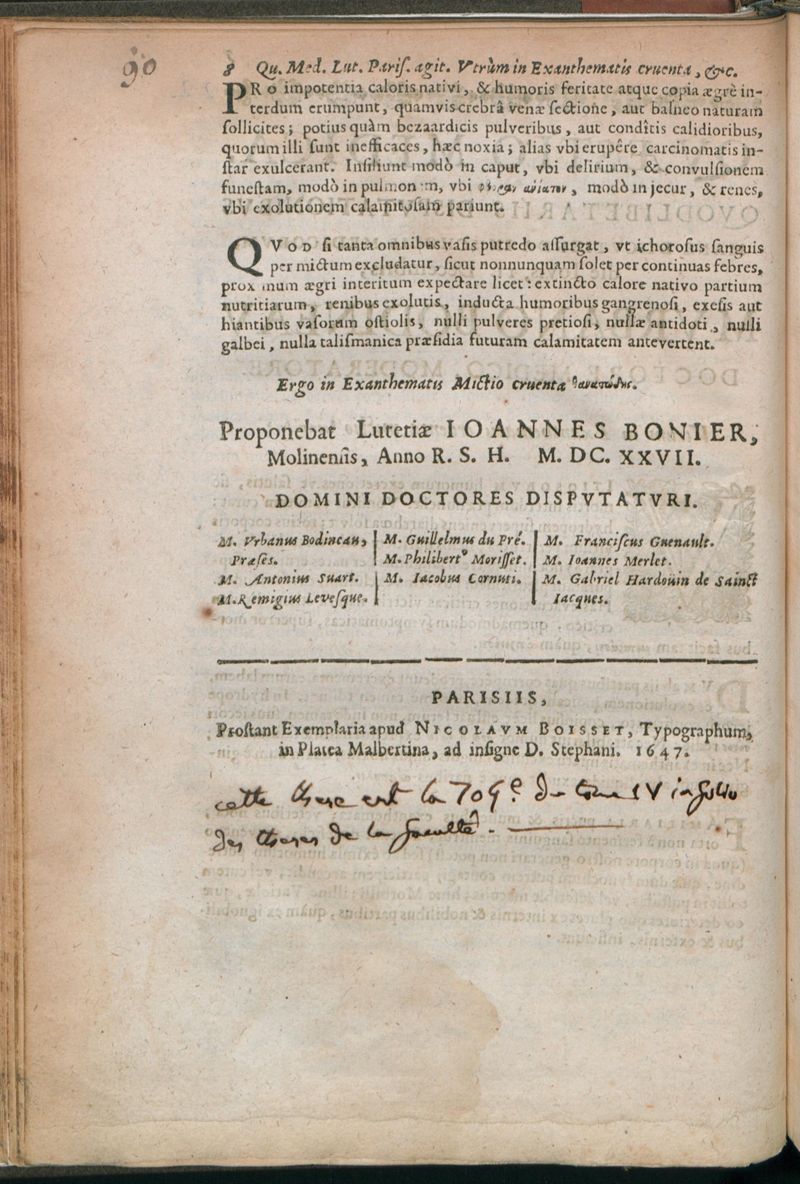 90
8 Qu. Med. Lut. Paris. agit. Vtrùm in Exanthematis cruenta, &c.
PRo impotentia caloris nativi, & humoris feritate atque copia ægrè in-
terdum erumpunt, quamvis crebrâ venæ sectione, aut balneo naturam
sollicites; potius quàm bezaardicis pulveribus, aut conditis calidioribus,
quorum illi sunt inefficaces, hæc noxia; alias vbi erupêre carcinomatis in-
star exulcerant. Insiliunt modò in caput, vbi delirium, & convulsionem
funestam, modò in pulmonem, vbi , modò in jecur, & renes,
vbi exolutionem calamitosam pariunt.
QVOD si tanta omnibus vasis putredo assurgat, vt ichorosus sanguis
per mictum excludatur, sicut nonnunquam solet per continuas febres,
proximum ægri interitum expectare licet: extincto calore nativo partium
nutritiarum, renibus exolutis, inducta humoribus gangrenosi, exesis aut
hiantibus vasorum ostiolis, nulli pulveres pretiosi, nullæ antidoti, nulli
galbei, nulla talismanica præsidia futuram calamitatem antevertent.
Ergo in Exanthematis Mictio cruenta θανατώδης.
Proponebat Lutetiæ IOANNES BONIER,
Molinensis, Anno R. S. H. M. DC. XXVII.
DOMINI DOCTORES DISPVTATVRI.
M. Vrbanus Bodineau,
Præses.
M. Antonius Suart.
M. Remigius Levesque.
M. Guillelmus du Pré.
M. Philibertꝰ Morisset.
M. Iacobus Cornuti.
M. Franciscus Guenault.
M. Ioannes Merlet.
M. Gabriel Hardouin de Sainct
Iacques.
PARISIIS,
Prostant Exemplaria apud NICOLAVM BOISSET, Typographum,
in Platea Malbertina, ad insigne D. Stephani. 1647.
cette these est la 709e. du tome IV in folio
des theses de la faculté.